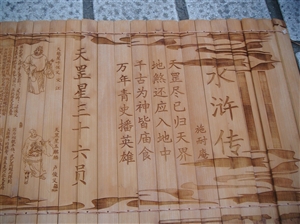 水浒传
施耐庵
天罡尽已归天界
地煞还应入地中
千古为神皆庙食
万年青史播英雄
天罡星三十六员